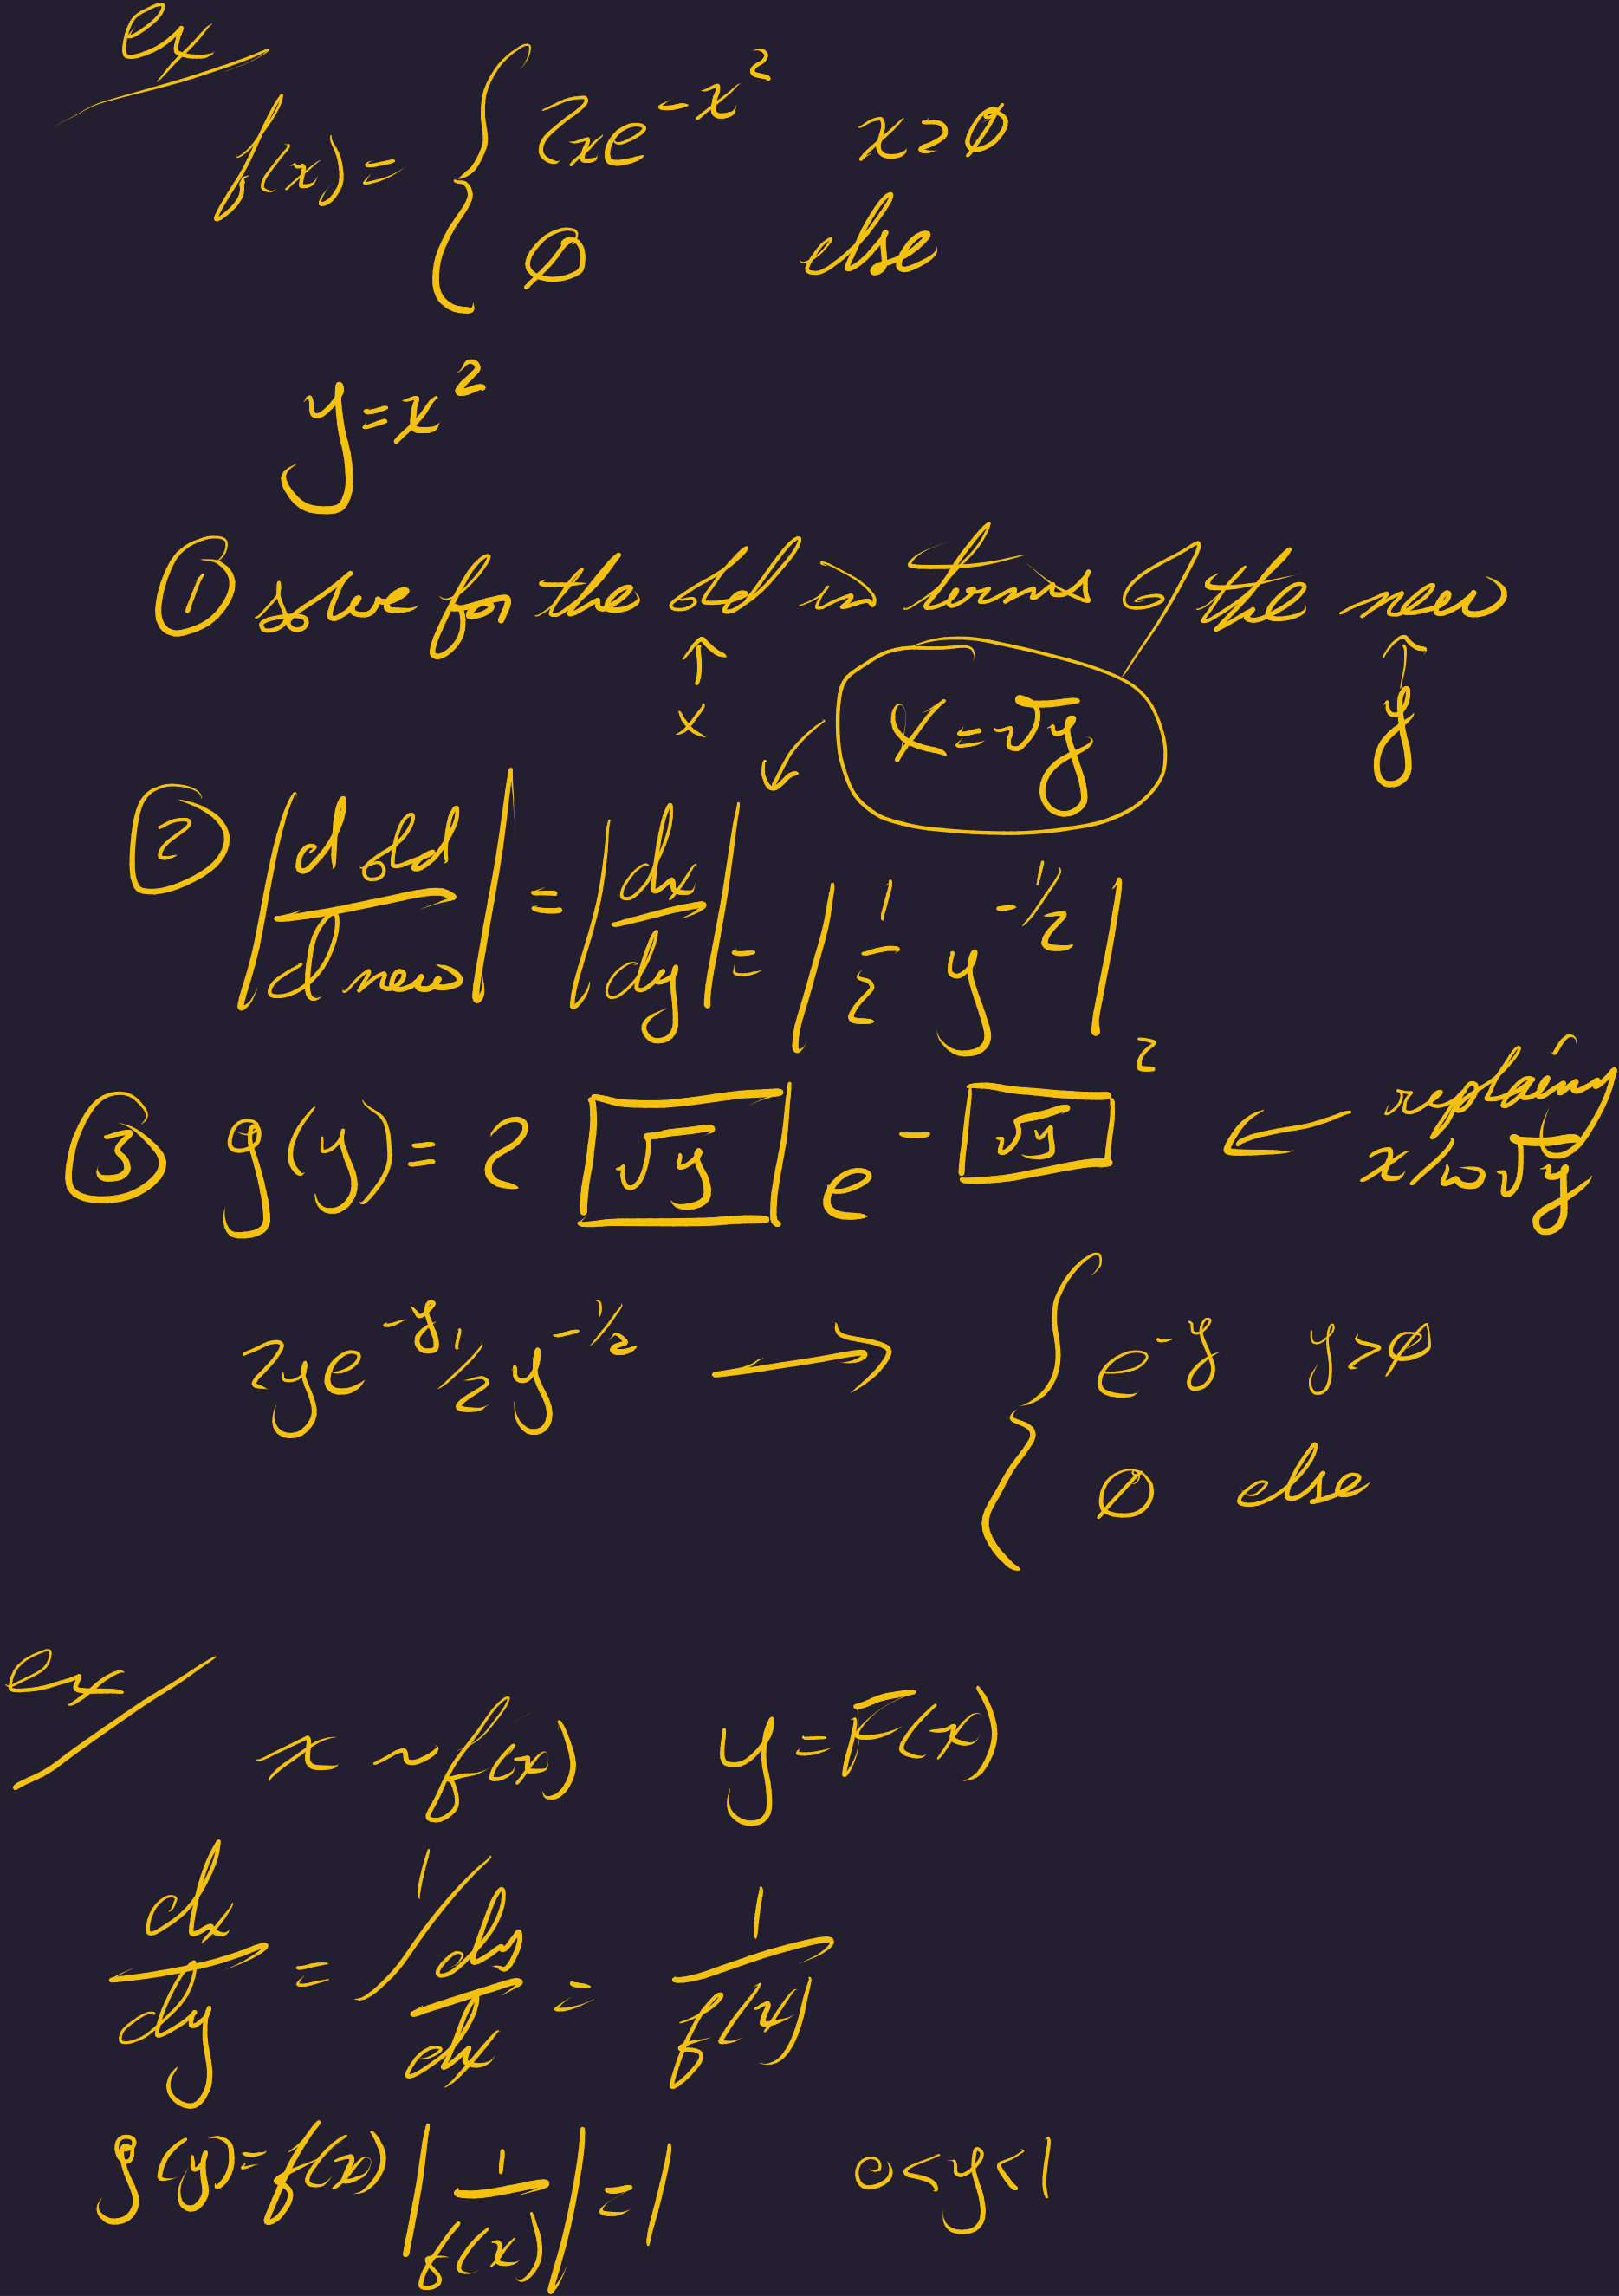 ex
f(x) = { 2xe^{-x^2} x>0
0 else
y = x^2
① solve for the old in terms of the new
↑ x ↑ y
x = √y
② |d old / d new| = |dx/dy| = |1/2 y^{-1/2}|
③ g(y) = 2 √y e^{-√y^2} ← replacing
x w √y
2ye^{-y} 1/2 y^{-1/2} → { e^{-y} y>0
0 else
ex
x ~ f(x) y = F(x)
dx/dy = 1/(dy/dx) = 1/f(x)
g(y) = f(x) |1/f(x)| = 1 0<y<1